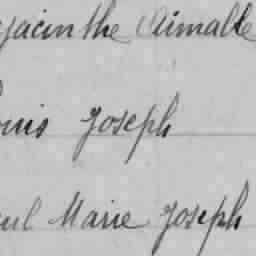 yacinthe Aimable
ouis Joseph
ul Marie Joseph